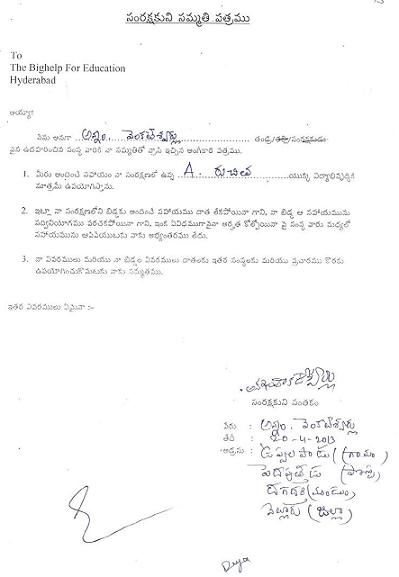 సంరక్షకుని సమ్మతి పత్రము
To
The Bighelp For Education
Hyderabad
అయ్యా!
నేను అనగా ..అన్నం. వెంకటేశ్వర్లు............తండ్రి/తల్లి/సంరక్షకుడు
పైన ఉదహరించిన సంస్థ వారికి నా సమ్మతితో వ్రాసి ఇచ్చిన అంగీకార పత్రము.
1. మీరు అందించే సహాయం నా సంరక్షణలో ఉన్న ..A. రుచిత..........యొక్క విద్యాభివృద్ధికి
మాత్రమే ఉపయోగిస్తాను.
2. ఇట్లా నా సంరక్షణలోని బిడ్డకు అందించే సహాయము దాత లేకపోయినా గాని, నా బిడ్డ ఆ సహాయమును
సద్వినియోగము పరచకపోయినా గాని, ఇంక ఏవిధముగానైనా అర్హత కోల్పోయినా పై సంస్థ వారు మధ్యలో
సహాయమును ఆపివేయుటకు నాకు అభ్యంతరము లేదు.
3. నా వివరములు మరియు నా బిడ్డల వివరములు దాతలకు ఇతర సంస్థలకు మరియు ప్రచారము కొరకు
ఉపయోగించుకొనుటకు నాకు సమ్మతము.
ఇతర వివరములు ఏమైనా :-
సంరక్షకుని సంతకం
పేరు : అన్నం. వెంకటేశ్వర్లు
తేది : 20-4-2013
అడ్రసు : ఉప్పలపాడు (గ్రామం)
దగదర్తి (మండలం)
నెల్లూరు (జిల్లా)